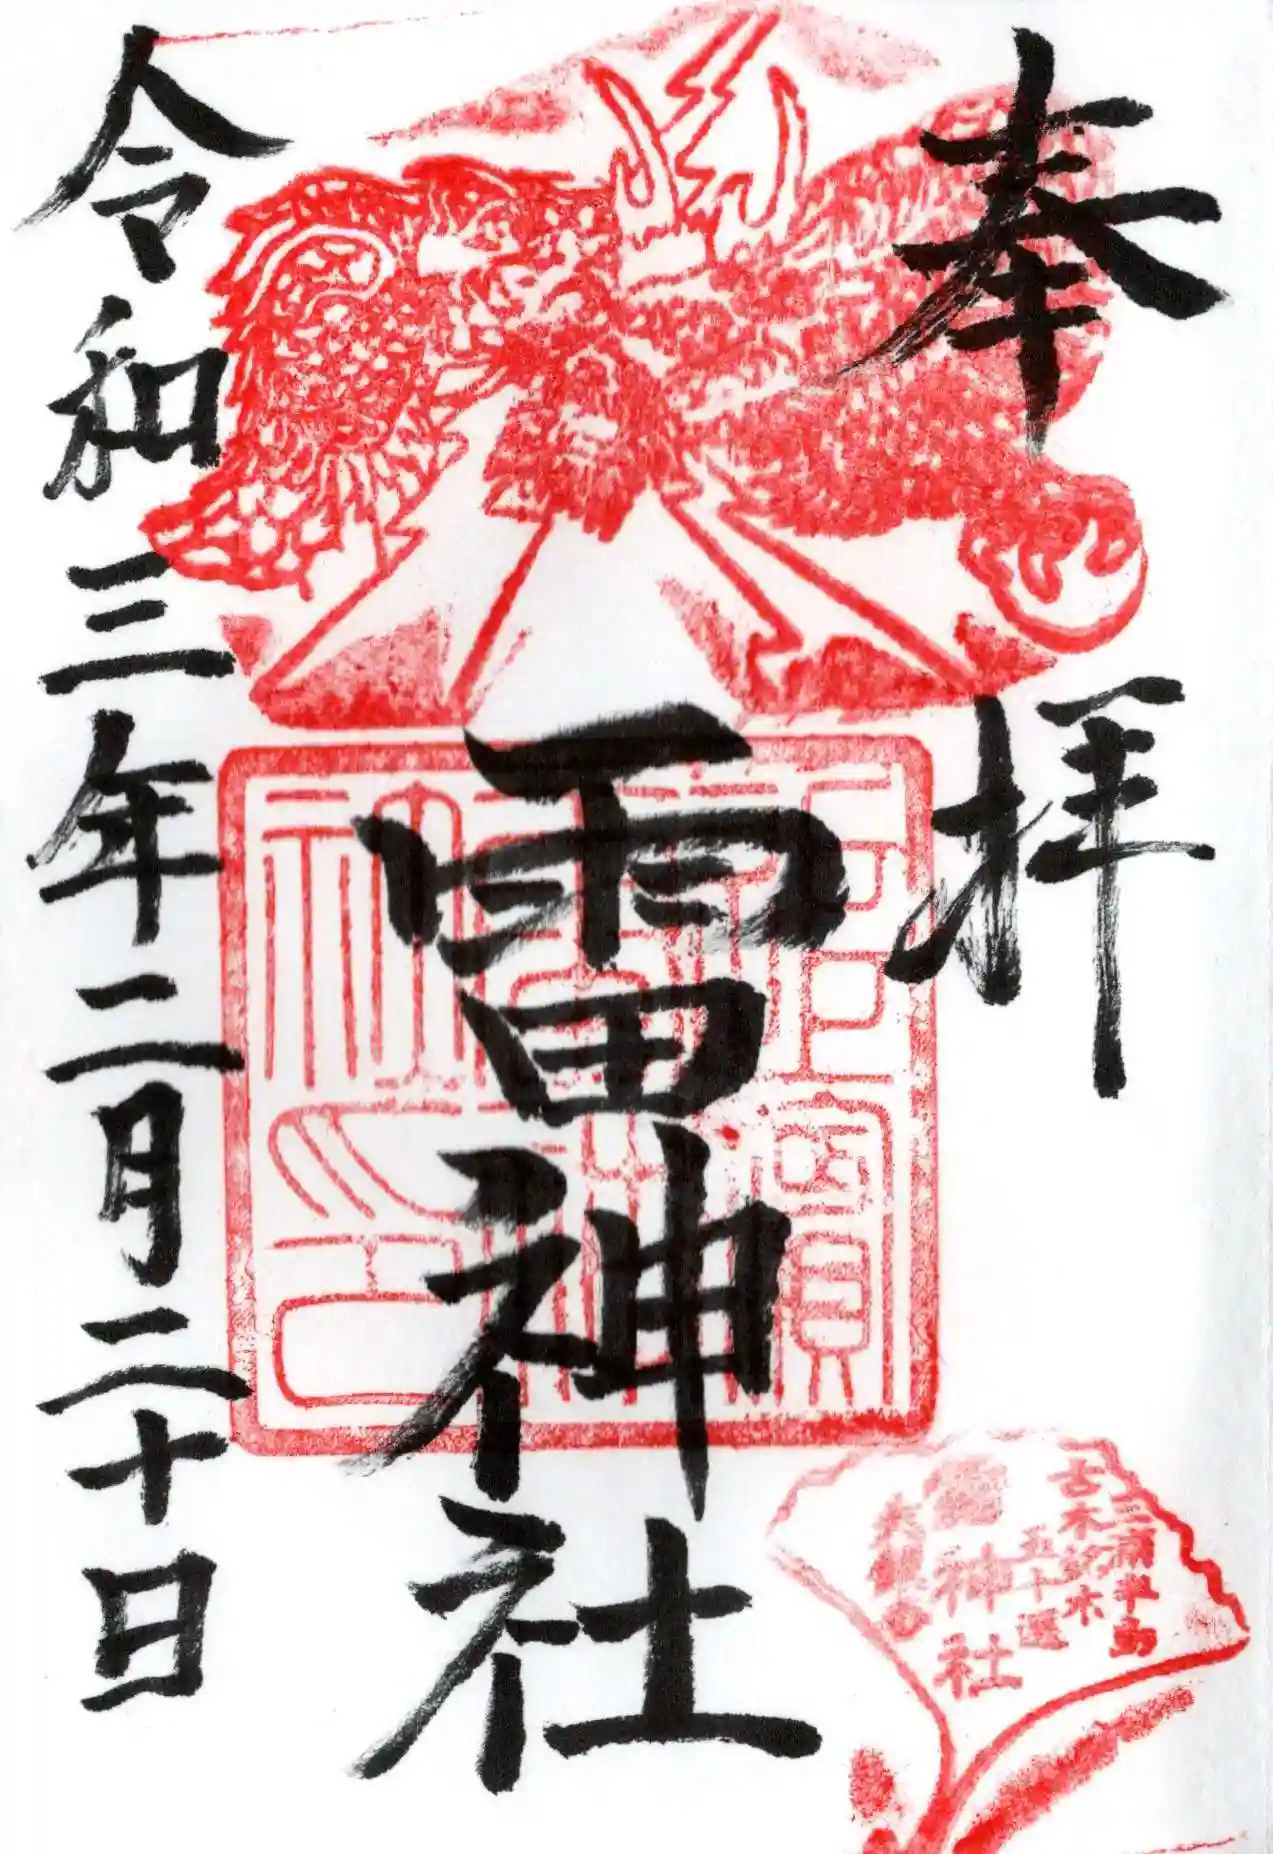 奉拝
雷神社
令和三年二月二十日
三浦半島
古木銘木
五十選
神社